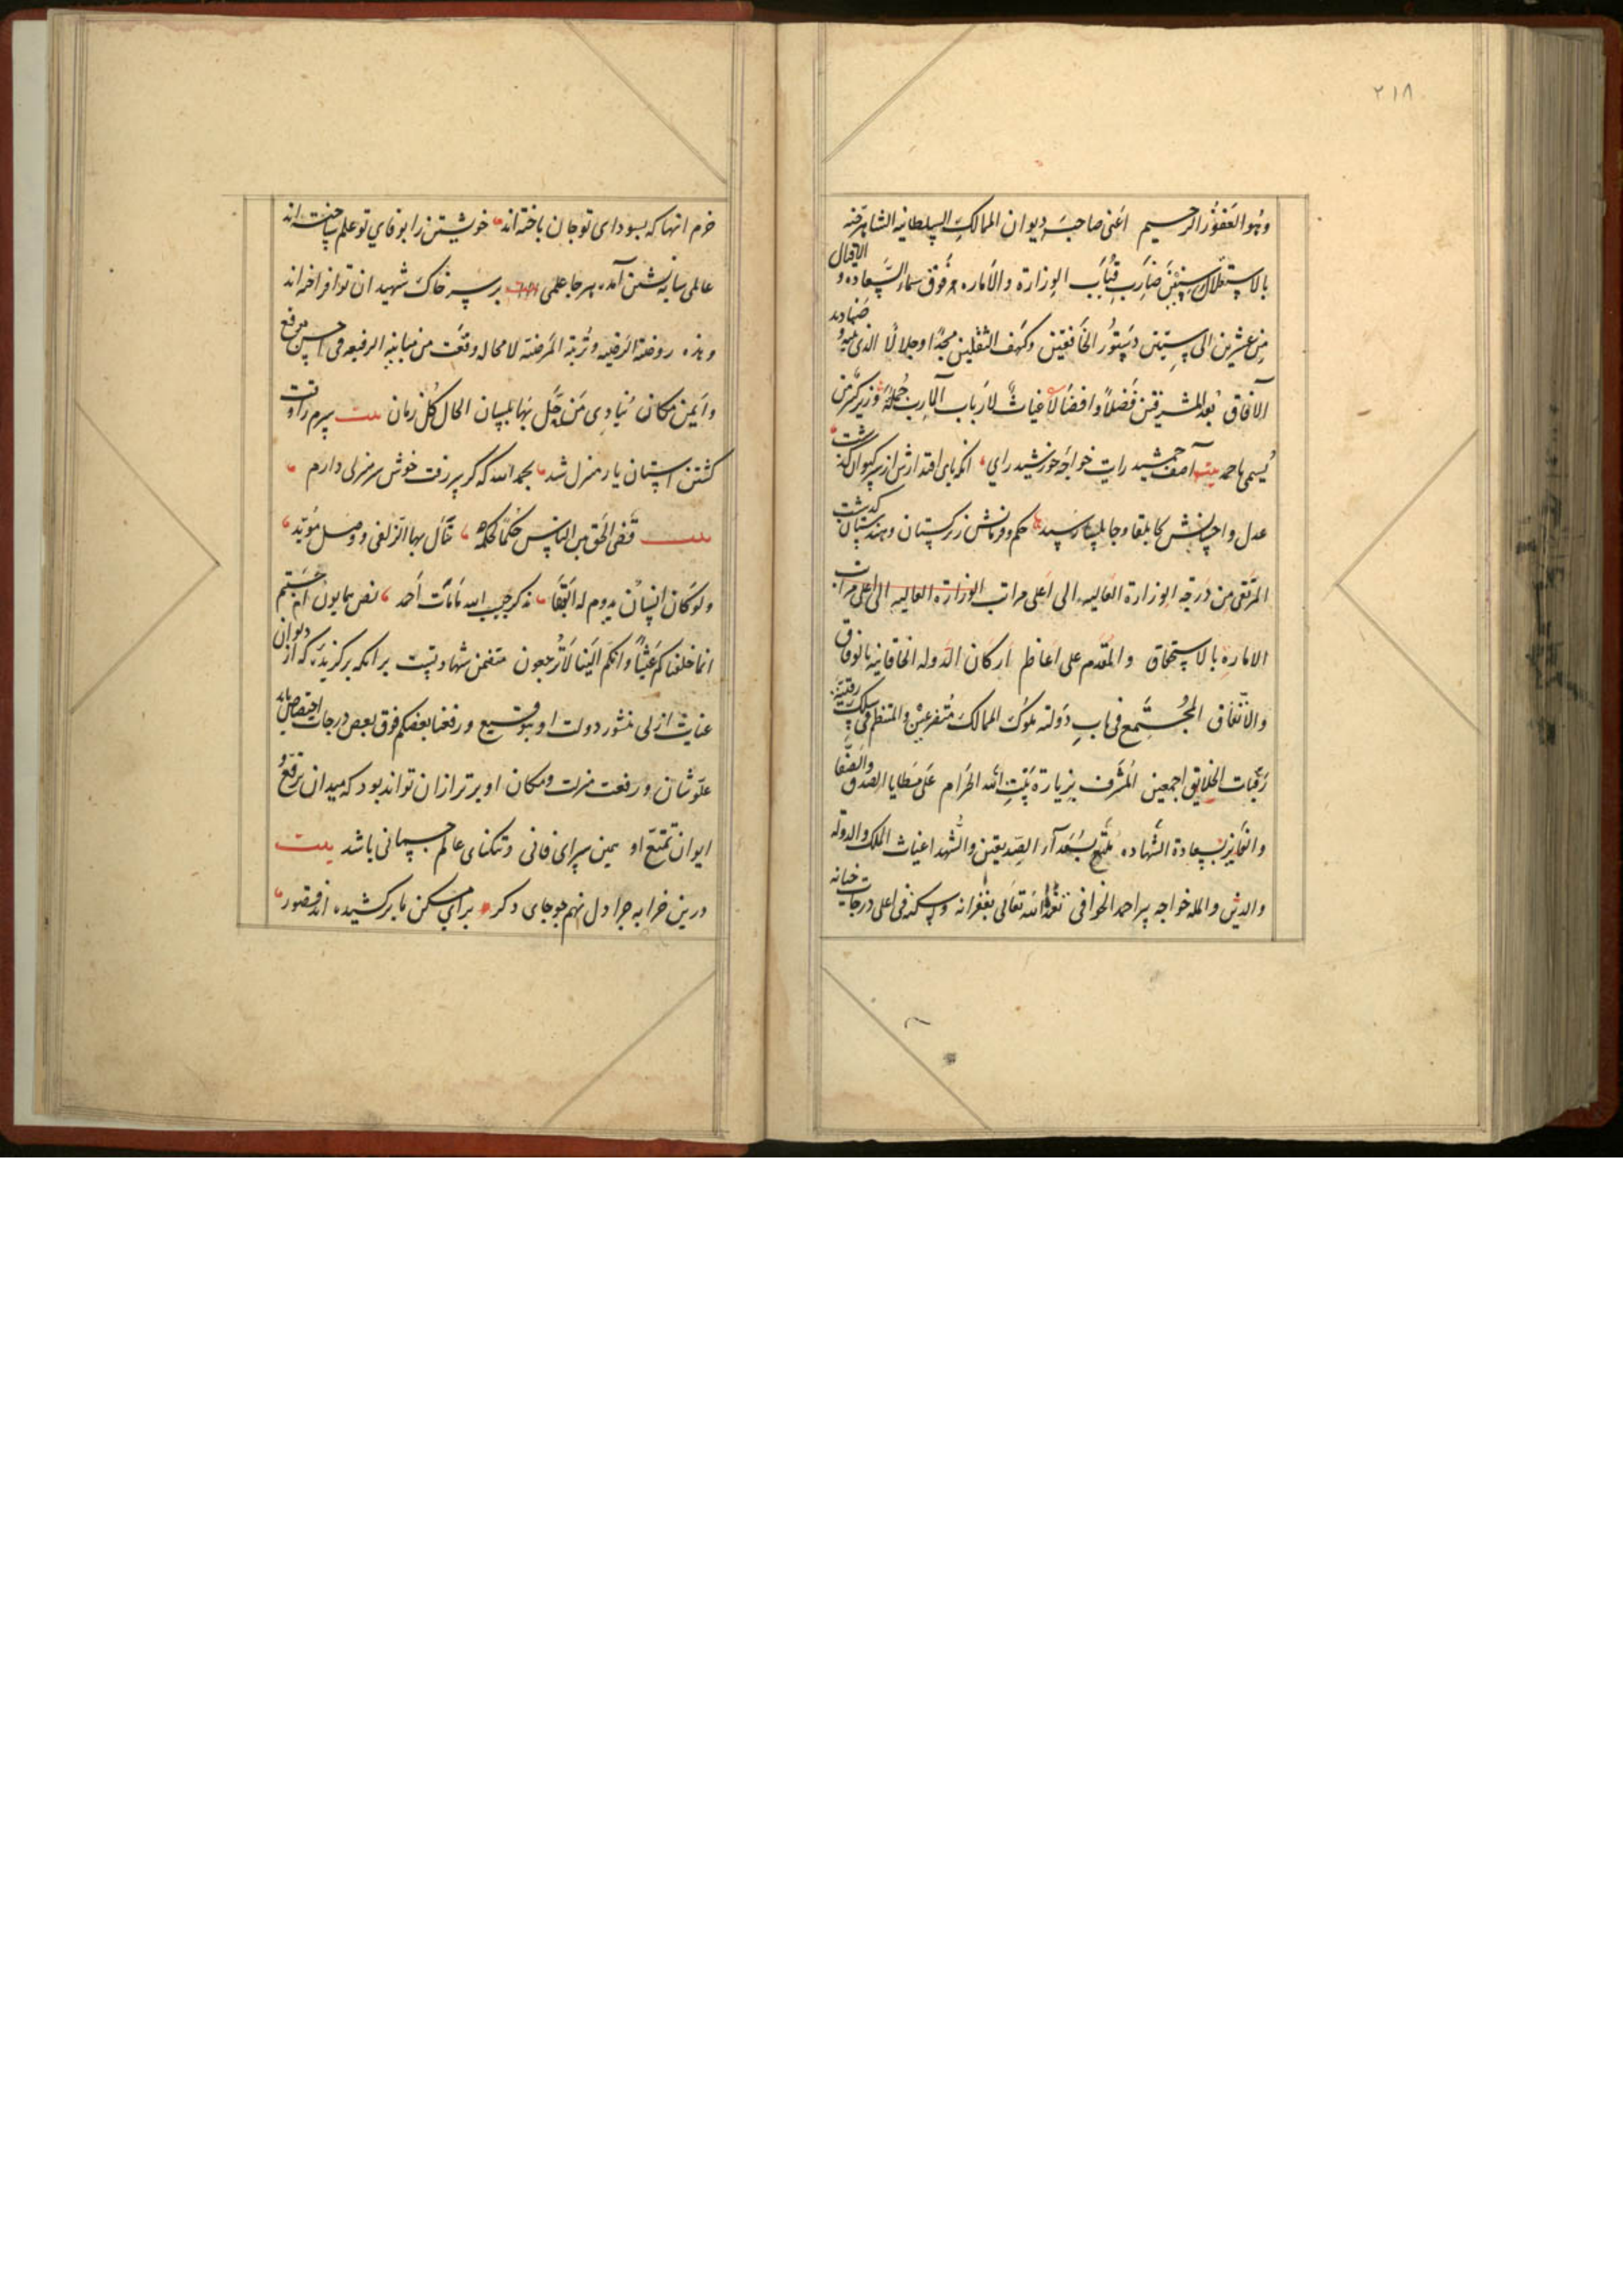 ۲۱۸
وهو الغفور الرحیم اعنی صاحب دیوان الممالک السلطانیه الشاهرخیه
بالاستقلال سنین ضارب قباب الوزارة والاماره فوق سماء السعاده و الاقبال
من عشرین الی ستین دستور الخافقین وکهف الثقلین مجدا وجلالا الذی ضنادید
الآفاق بعد المشرقین فضلا وافضالا غیاث لارباب المآرب جملة وزیر کسر من
یسمی باحمد بیت آصف جمشید رایت خواجهٔ خورشید رای آنکه پای اقتدارش از سر کیوان گذشت
عدل و احسانش کا بلقا وجابلسا رسید حکم و فرمانش ز ترکستان و هندستان گذشت
المرتقی من درجة الوزارة العالیه الی اعلی مراتب الوزارة العالیه الی اعلی مراتب
الاماره بالاستحقاق والمقدم علی اعاظم ارکان الدوله الخاقانیه بالوفاق
والاتفاق المجتمع فی باب دولته ملوک الممالک متفرعین والمنتظم فی سلک رقیته
رقبات الخلایق اجمعین المشرف بزیارة بیت الله الحرام علی مطایا الصدق والصفا
والفایز بسعادة الشهاده الصدیقین والشهدا غیاث الملک والدوله
والدین والمله خواجه پیر احمد الخوافی تغمده الله تعالی بغفرانه وسکنه فی اعلی درجات جنانه
خرم انها که بسودای تو جان باخته اند خویشتن را بوفای تو علم ساخته اند
عالمی سایه نشین آمده هر جا علمی بر سر خاک شهیدان تو افراخته اند
وهذه روضة الرضیه و تربة المرضیة لا محاله وقعت من مبانیه الرفیعه فی احسن موقع
وایمن مکان ینادی من حل بها بلسان الحال کل زمان بیت سرم را وقت
گشتن آستان یار منزل شد بحمد الله که گر سر رفت خوش سر منزلی دارم
بیت قضی الحق بین الناس حکما لحکمه بها الزلفی و وصل مؤبد
ولو کان انسان یدوم له البقا حبیب الله ما مات احمد نص همایون ام حسبتم
انما خلقناکم عبثا وانکم الینا لا ترجعون متضمن شهادتیست بر آنکه برگزیده که از دیوان
عنایت ازلی منشور دولت او بتوقیع ورفعنا بعضکم فوق بعض درجات اختصاص یابد
علو شان و رفعت منزلت و مکان او برتر از ان تواند بود که میدان ترفع و
ایوان تمتع او همین سرای فانی و تنگنای عالم جسمانی باشد بیت
درین خرابه چرا دل نهم چو جای دگر برای مسکن ما برکشیده اند قصور